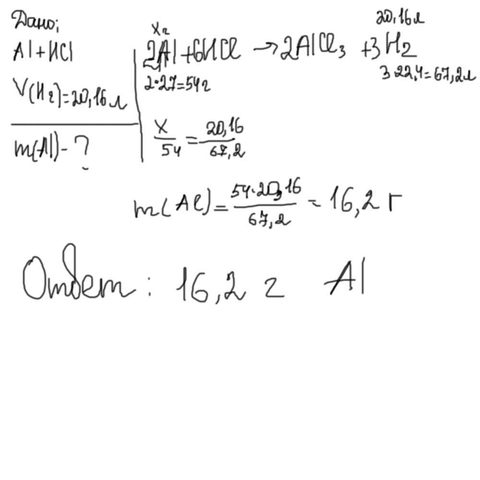 Дано:
Al+HCl
V(H₂)=20,16 л
m(Al)-?
x г 20,16 л
2Al+6HCl → 2AlCl₃ + 3H₂
2·27=54г 3·22,4=67,2л
x/54 = 20,16/67,2
m(Al) = 54·20,16/67,2 = 16,2 г
Ответ: 16,2 г Al